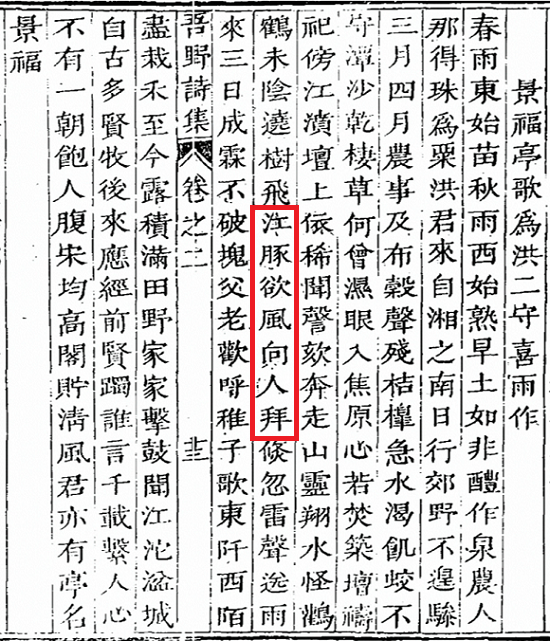 景福亭歌爲洪二守喜雨作
春雨東始苗秋雨西始熟早土如非醴作泉農人
那得珠爲粟洪君來自湘之南日行郊野不遑驂
三月四月農事及布穀聲殘桔槹急水渴飢蛟不
守潭沙乾棲草何曾濕眼入焦原心若焚築壇禱
祀傍江濆壇上依稀聞謦欬奔走山靈翔水怪鸛
鶴未陰遶樹飛江豚欲風向人拜倐忽雷聲迸雨
來三日成霖不破塊父老歡呼稚子歌東阡西陌
吾野詩集 卷之二
盡栽禾至今露積滿田野家家擊鼓聞江沱湓城
自古多賢牧後來應經前賢躅誰言千載繫人心
不有一朝飽人腹宋均高閣貯清風君亦有亭名
景福